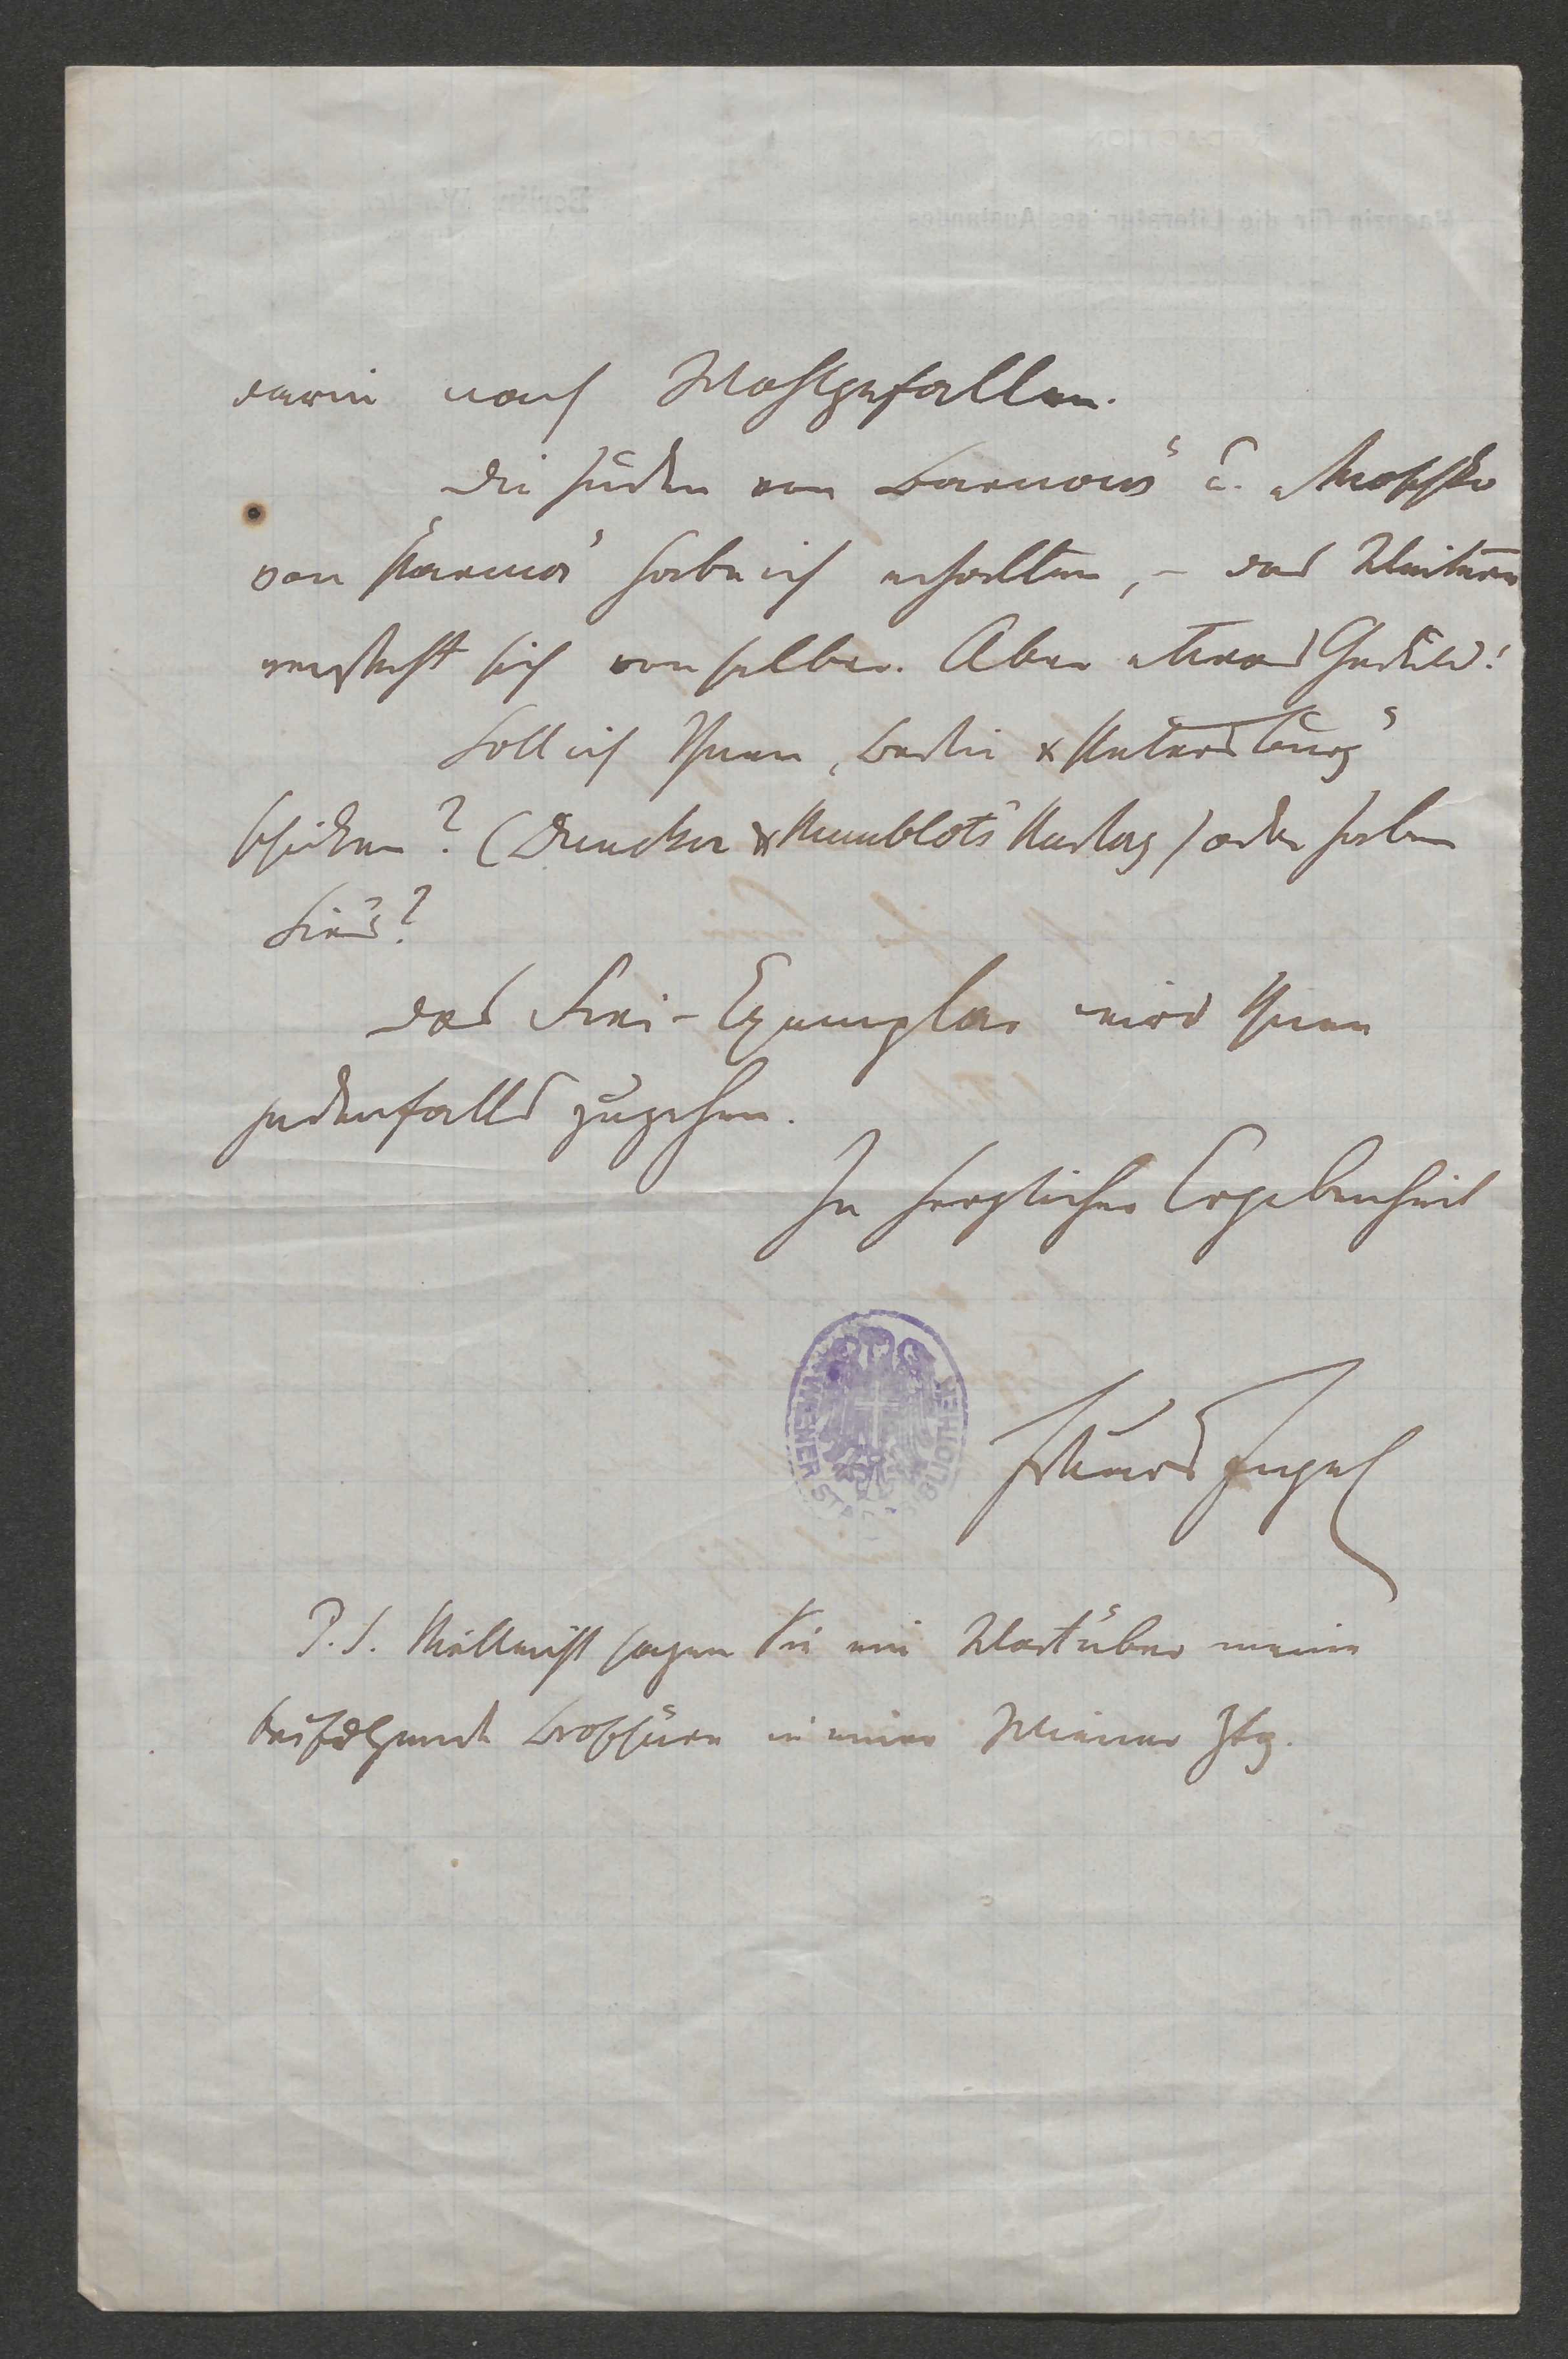 darin nach Wohlgefallen.
Die Juden von Barnow“ u. Moschko
von Parma“ habe ich erhalten, – das Weitere
versteht sich von selber. Aber etwas Geduld!
Soll ich Ihnen „Berlin & Petersburg“
schicken? (Duncker & Humblots Verlag) oder haben
Sie's?
Das Frei-Exemplar wird Ihnen
jedenfalls zugehen.
In herzlicher Ergebenheit
Eduard Engel
P.S. Vielleicht sagen Sie ein Wort über meine
beifolgende Broschüre in einer Wiener Ztg.
WIENER STADTBIBLIOTHEK